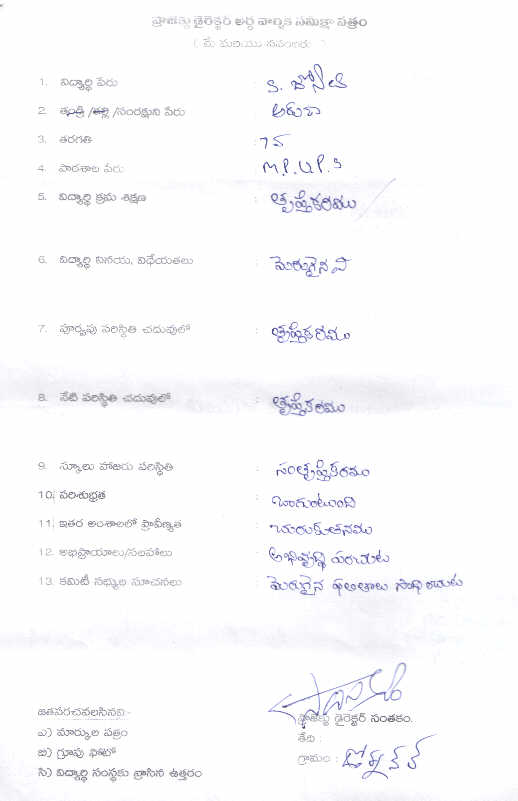 ప్రాజెక్టు డైరెక్టర్ అర్ధ వార్షిక సమీక్షా పత్రం
( మే మరియు నవంబరు )
1. విద్యార్థి పేరు :
2. తండ్రి /తల్లి /సంరక్షుని పేరు : అరుణ
3. తరగతి : 7వ
4. పాఠశాల పేరు : M.P.U.P.S
5. విద్యార్థి క్రమ శిక్షణ : తృప్తికరము
6. విద్యార్థి వినయ, విధేయతలు : మెరుగైనవి
7. పూర్వపు పరిస్థితి చదువులో : తృప్తికరము
8. నేటి పరిస్థితి చదువులో : తృప్తికరము
9. స్కూలు హాజరు పరిస్థితి : సంతృప్తికరము
10. పరిశుభ్రత : బాగుంటుంది
11. ఇతర అంశాలలో ప్రావీణ్యత : చురుకుతనము
12. అభిప్రాయాలు/సలహాలు : అభివృద్ధి పరచుట
13. కమిటీ సభ్యుల సూచనలు : మెరుగైన ఫలితాలు సాధించుట
జతపరచవలసినవి:-
ఎ) మార్కుల పత్రం
బి) గ్రూపు ఫోటో
సి) విద్యార్థి సంస్థకు వ్రాసిన ఉత్తరం
ప్రాజెక్టు డైరెక్టర్ సంతకం.
తేది :
గ్రామం :